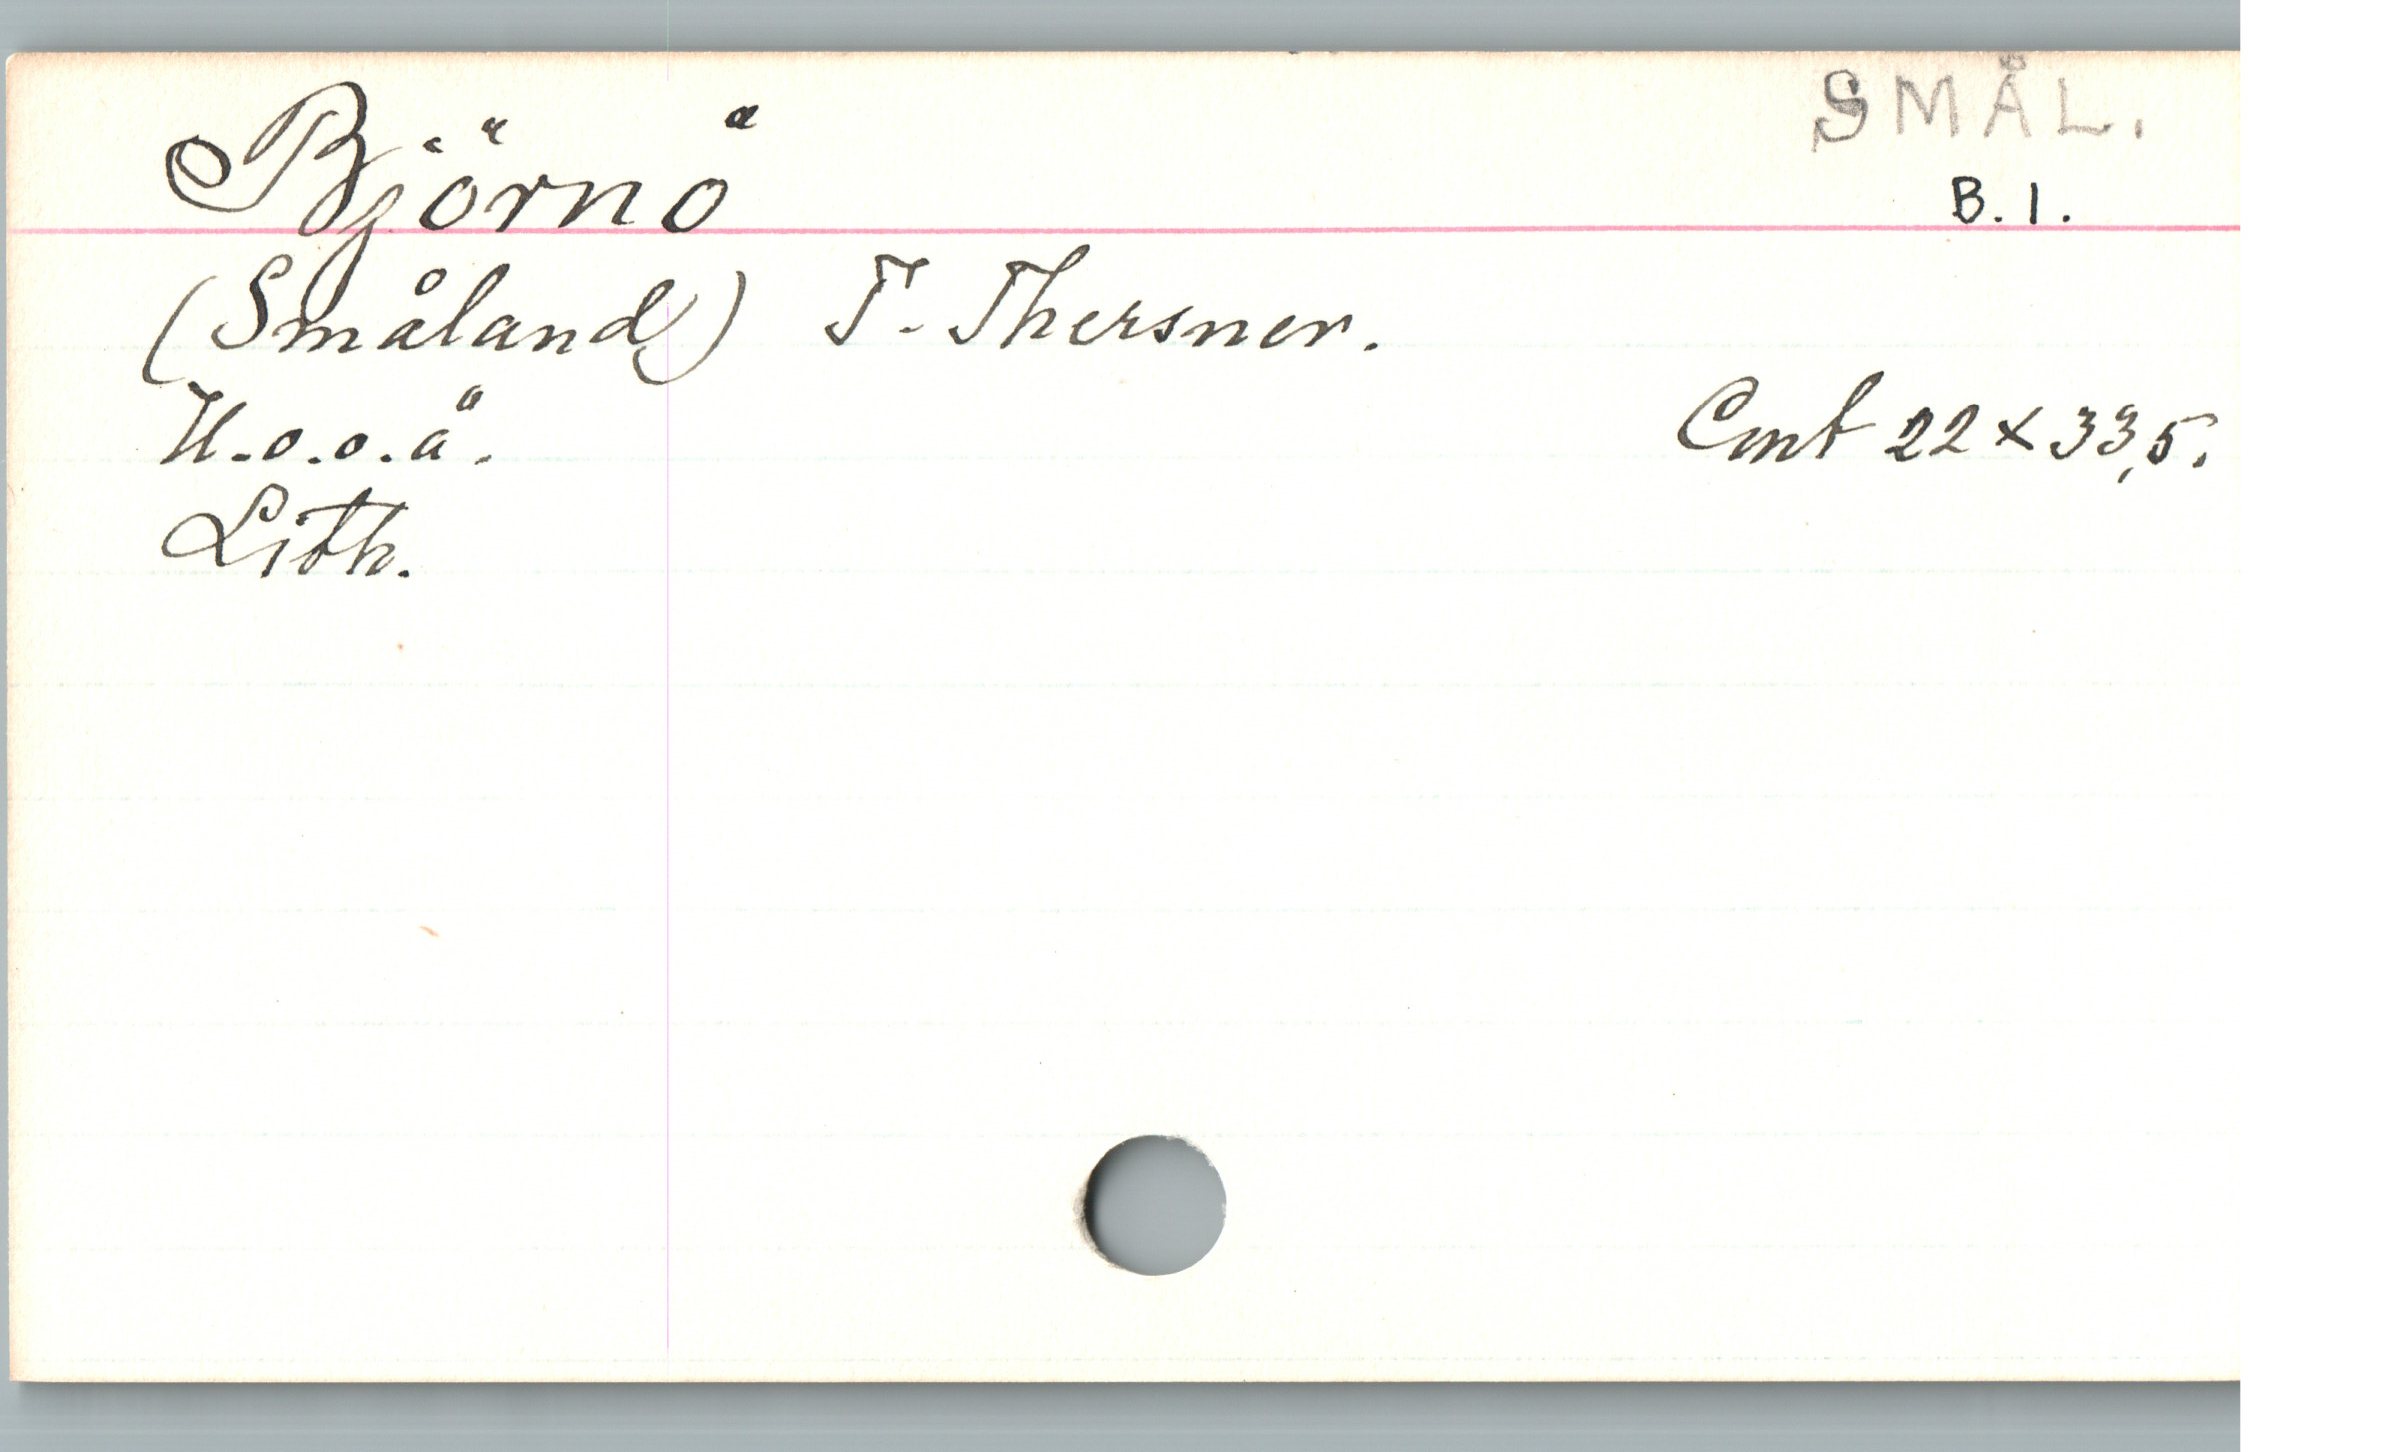 Björnö
SMÅL.
B. 1.
(Småland) T. Thersner.
U.o.o.ä.
Cmt 22 x 33,5.
Lith.